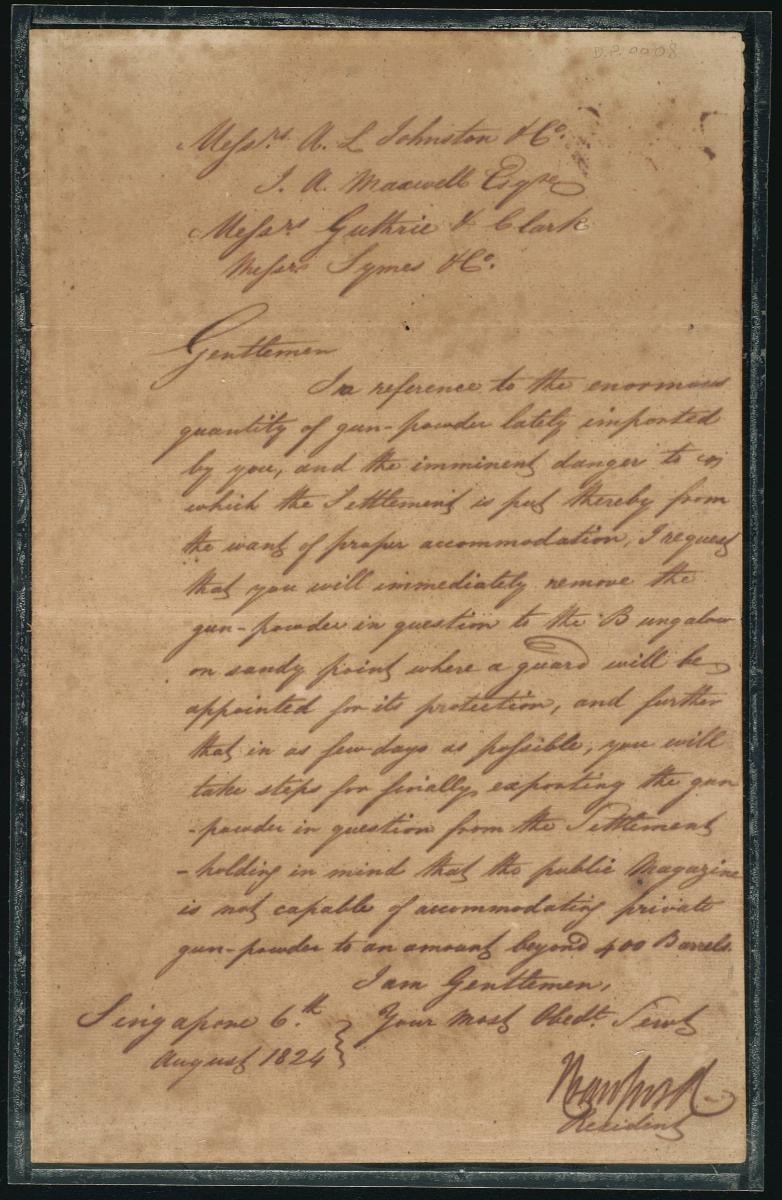 D.P. 0008
Messrs. A. L Johnston & Co.
J. A. Maxwell Esqre
Messrs Guthrie & Clark
Messrs Symes & Co.
Gentlemen
In reference to the enormous
quantity of gun-powder lately imported
by you, and the imminent danger to
which the Settlement is put thereby from
the want of proper accommodation, I request
that you will immediately remove the
gun-powder in question to the Bungalow
on sandy point where a guard will be
appointed for its protection, and further
that in as few days as possible, you will
take steps for finally exporting the gun
-powder in question from the Settlement
-holding in mind that the public Magazine
is not capable of accommodating private
gun-powder to an amount beyond 400 Barrels.
I am Gentlemen,
Singapore 6.th Your most Obedt. Servt
August 1824
Crawfurd
Resident